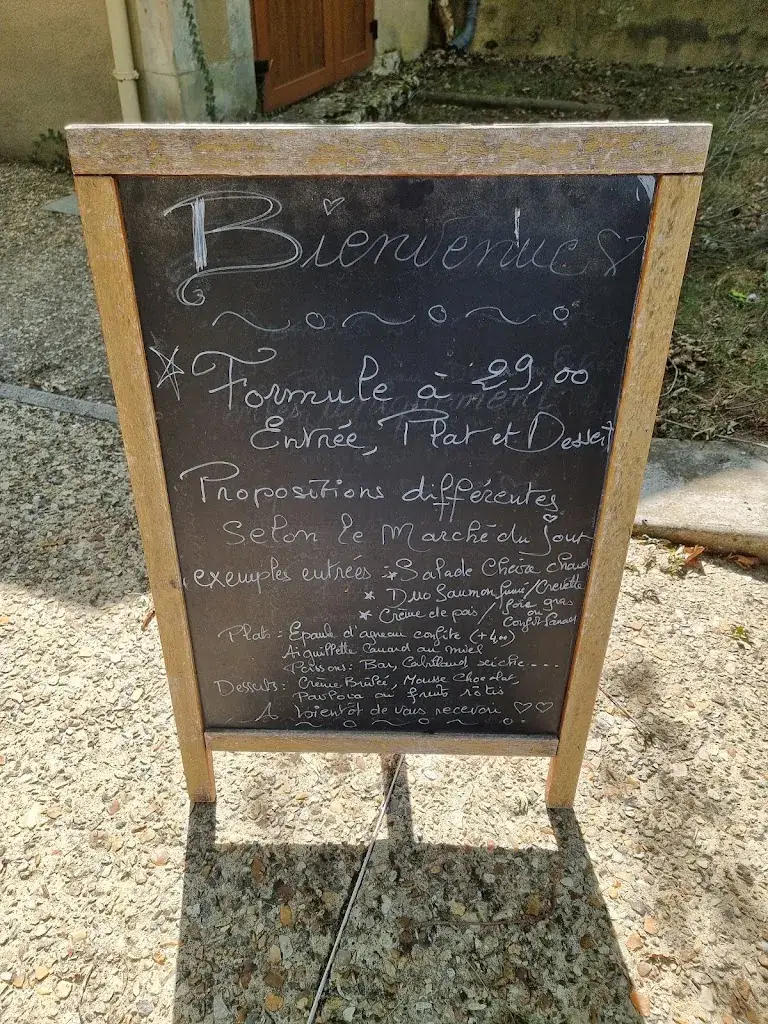 Bienvenue
Formule à 29,00
Entrée, Plat et Dessert
Propositions différentes
Selon le Marché du jour
exemples entrées : * Salade Chèvre chaud
* Duo Saumon fumé / Crevette
* Crème de pois / foie gras
ou
Confit Canard
Plats : Epaule d'agneau confite (+4,00)
Aiguillette Canard au miel
Poissons : Bar, Cabillaud seiche ....
Desserts : Crème Brûlée, Mousse Chocolat
Pavlova ou fruits rôtis
A bientôt de vous recevoir